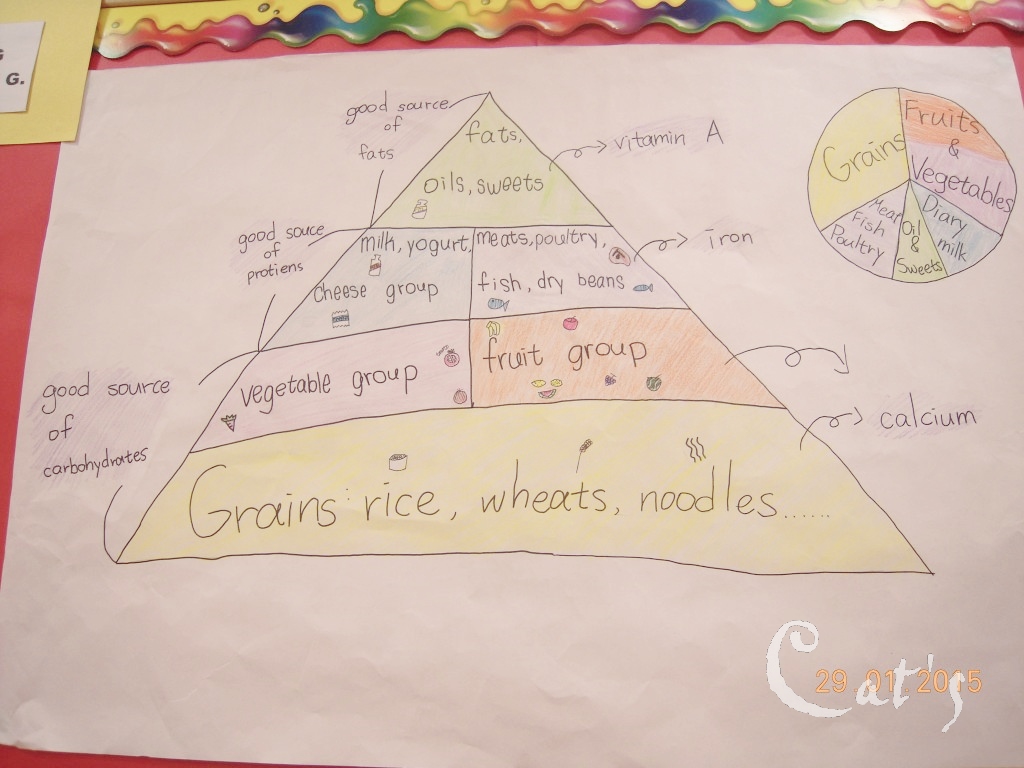 G
G.
good source
of
fats
fats,
oils, sweets
vitamin A
good souce
of
protiens
milk, yogurt,
cheese group
meats, poultry,
fish, dry beans
iron
good source
of
carbohydrates
vegetable group
fruit group
calcium
Grains: rice, wheats, noodles......
Grains
Fruits
&
Vegetables
Meat
Fish
Poultry
Oil
&
Sweets
Diary
milk
Cat's
29 01 2015